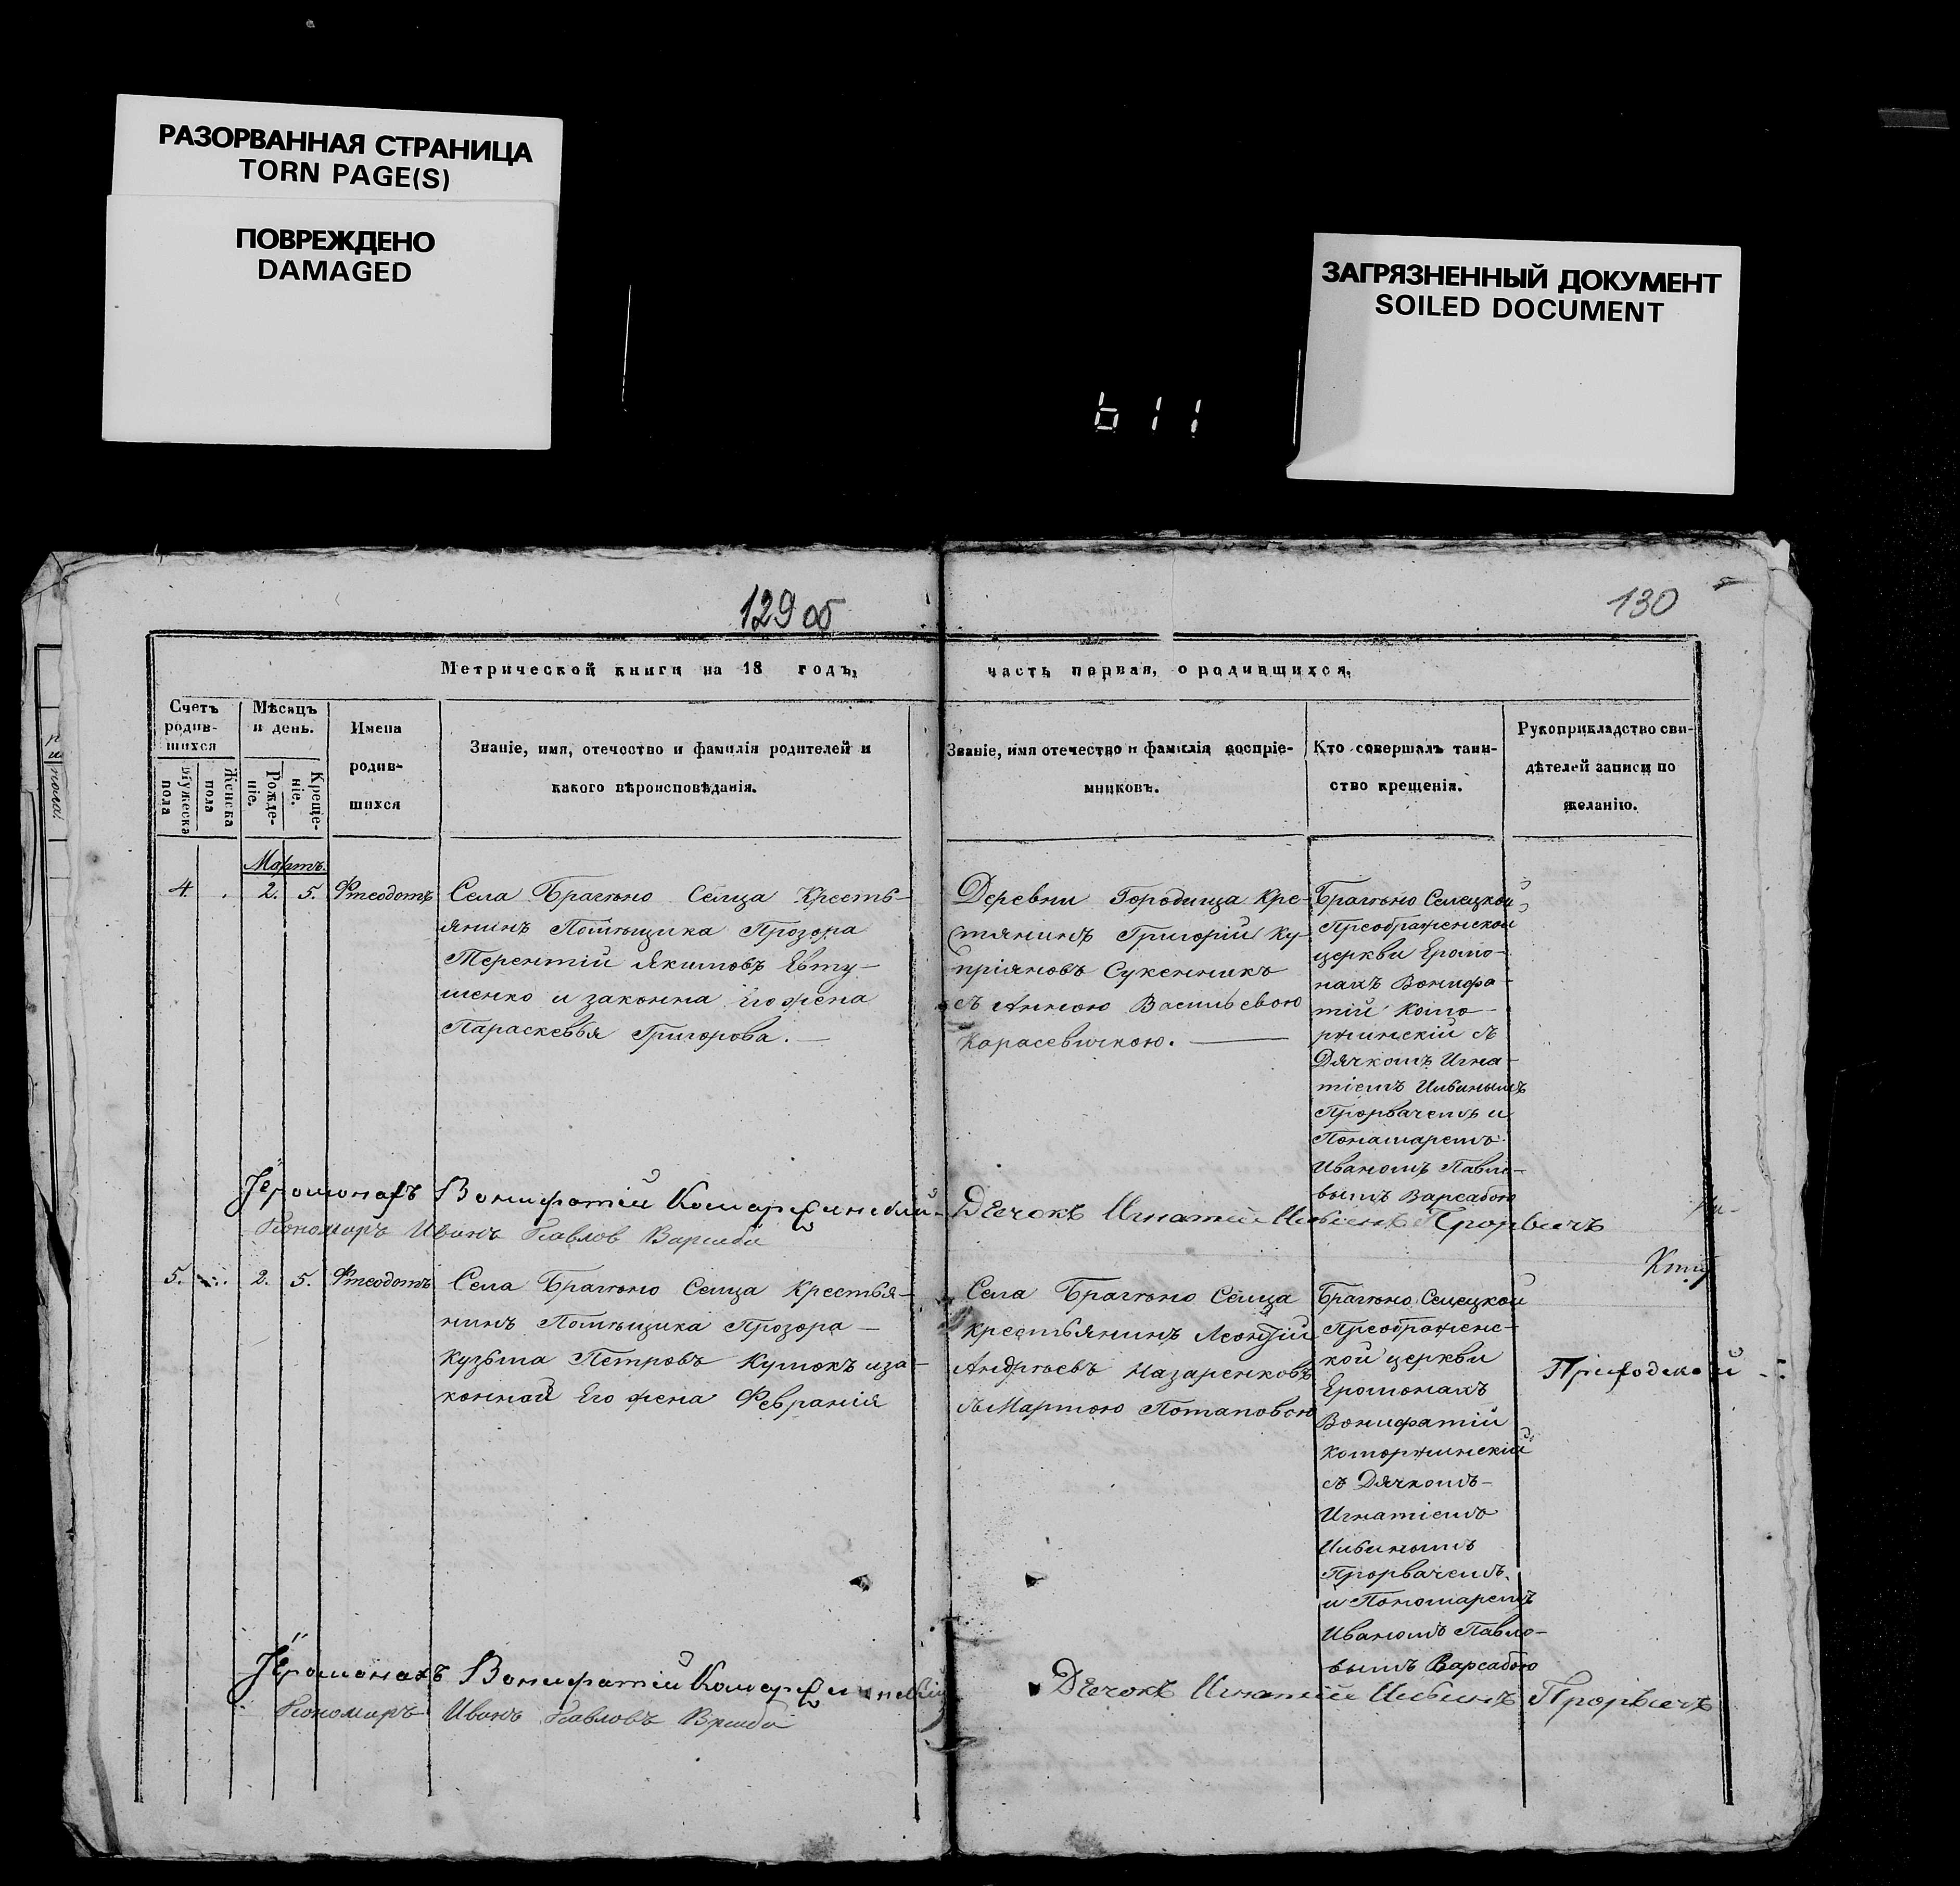 РАЗОРВАННАЯ СТРАНИЦА
TORN PAGE(S)
ПОВРЕЖДЕНО
DAMAGED
ЗАГРЯЗНЕННЫЙ ДОКУМЕНТ
SOILED DOCUMENT
611
129 об
130
Метрической книги на 18 годъ,
часть первая, о родившихся.
Счетъ родив-шихся
Мужеска пола
Женска пола
Мѣсяцъ и день.
Рожде-ніе.
Креще-ніе.
Имена
родив-
шихся
Званіе, имя, отечество и фамилія родителей и
какого вѣроисповѣданія.
Званіе, имя отечество и фамилія воспріе-
мниковъ.
Кто совершалъ таин-
ство крещенія.
Рукоприкладство сви-
дѣтелей записи по
желанію.
Мартъ.
4. 2. 5. Фтеодотъ
Села Брагѣно Селца Кресть-
янинъ Помѣщика Прозора
Терентій Якимовъ Евту-
шенко и законна его жена
Параскевья Григорова.
Деревни Городища Кре-
стянинъ Григорій Ку-
пріяновъ Сукенникъ
съ Анною Васильевою
Карасевичкою.
Брагѣно Селецкой
Преображенской
церкви Еромо-
нахъ Вонифа-
тій Комо-
ржинскій съ
Дячкомъ Игна-
тіемъ Ильинымъ
Прорвачемъ и
Понамаремъ
Иваномъ Павло-
вымъ Варсабою
Іеромонахъ Вонифатій Коморжинскій
Дѣчокъ Игнатій Ильинъ Прорвичъ
Пономаръ Иванъ Павлов
5. 2. 5. Фтеодотъ
Села Брагѣно Селца Крестья-
нинъ Помѣщика Прозора
Кузьма Петровъ и за-
конной Его жена Февранія
Села Брагѣно Селца
Крестьянинъ Леонтій
Андрѣевъ Назаренковъ
съ Мартою Потаповою
Брагѣно Селецкой
Преображенс-
кой церкви
Еромонахъ
Вонифатій
Коморжинскій
съ Дячкомъ
Игнатіемъ
Ильинымъ
Прорвачемъ
и Пономаремъ
Иваномъ Павло-
вымъ Варсабою
Приходской
Іеромонахъ Вонифатій Коморжинскій
Дѣчокъ Игнатій Ильинъ Прорвичъ
Пономаръ Иванъ Павловъ